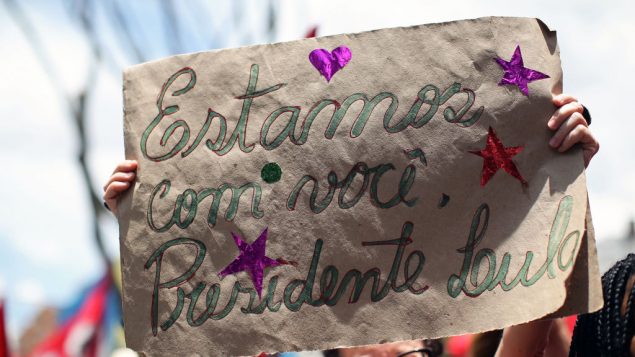 Estamos
com você,
Presidente Lula